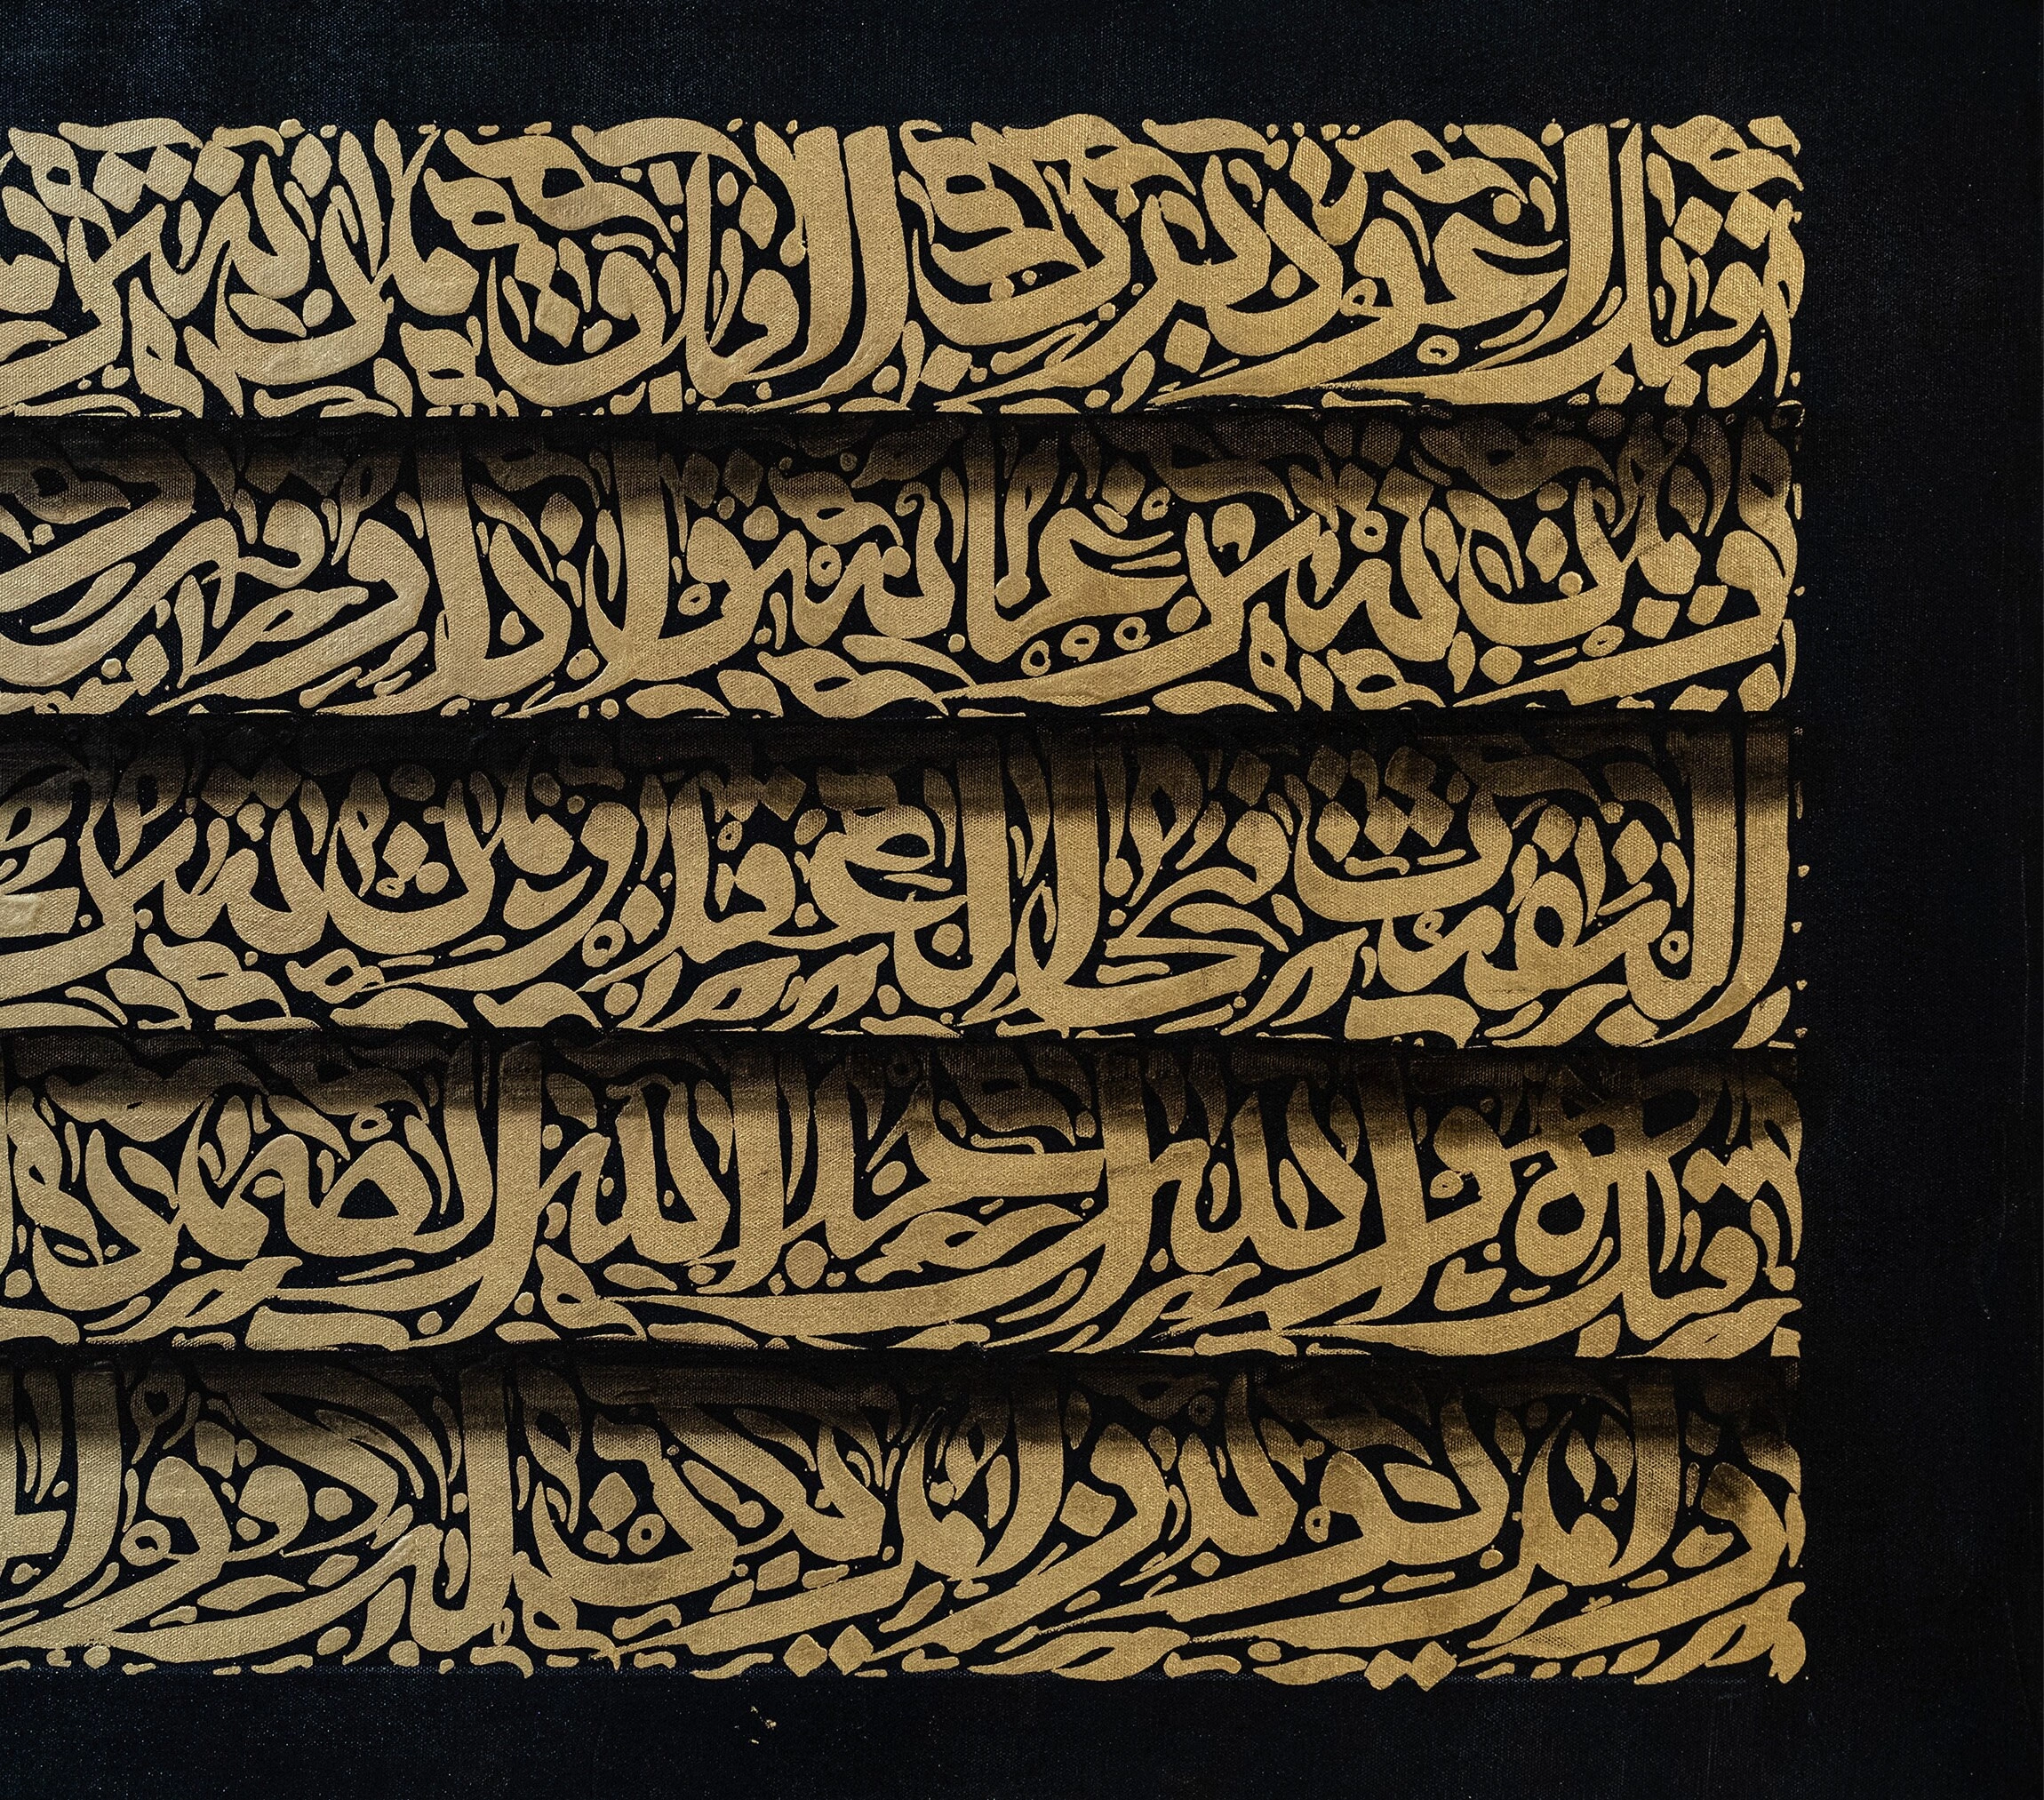 قل اعوذ برب الفلق من شر
ومن شر غاسق اذا وقب
النفثت في العقد ومن شر
قل هو الله احد الله الصمد
ولم يولد ولم يكن له كفوا